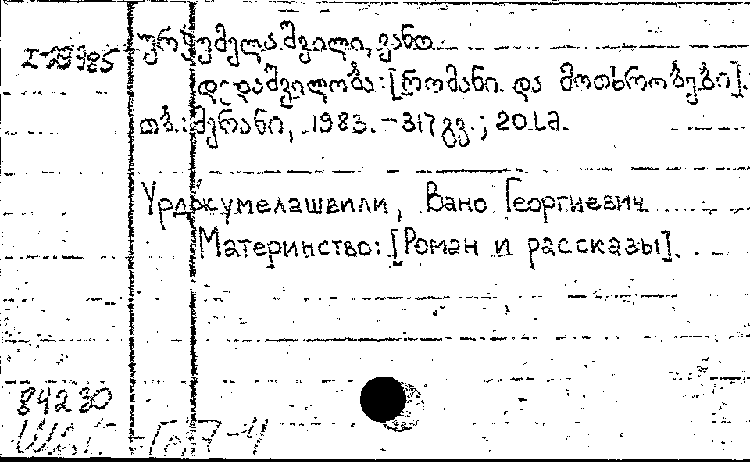 ურჯუმელაშვილი, ვანო
დედაშვილობა: [რომანი და მოთხრობები].
თბ.: მერანი, 1983. – 317 გვ.; 20 სმ.
Урджумелашвили, Вано Георгиевич
Материнство: [Роман и рассказы].
84230